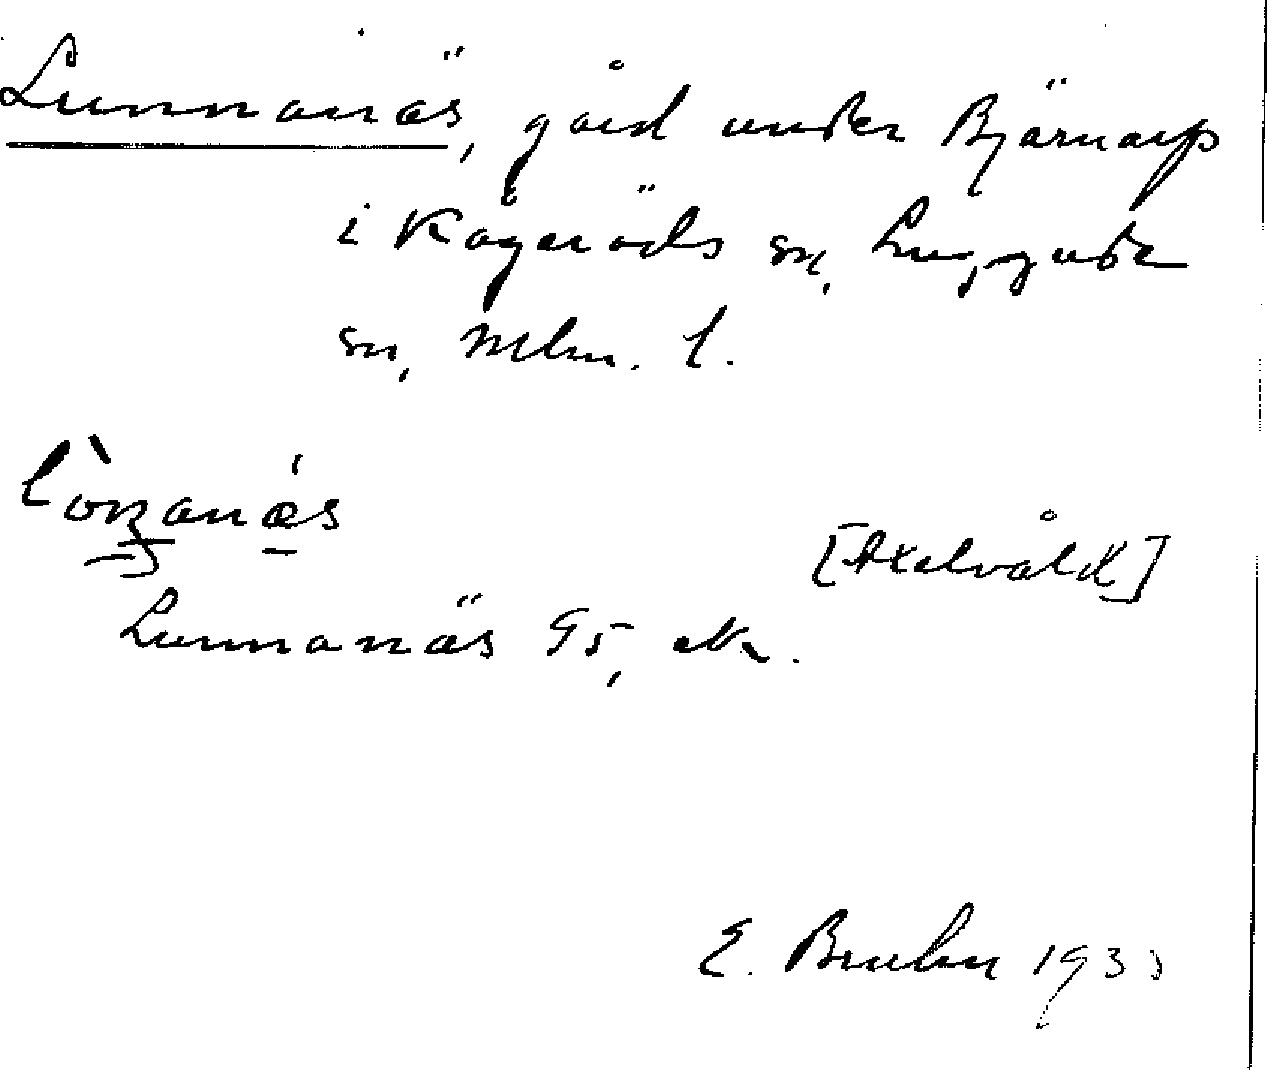 Lunnanäs, gård under Bjärnarp
i Kågeröds sn, Luggude
sn, Mlm. l.
[Axelvåld]
Lunnanäs 95, ek.
E. Bruhn 1933